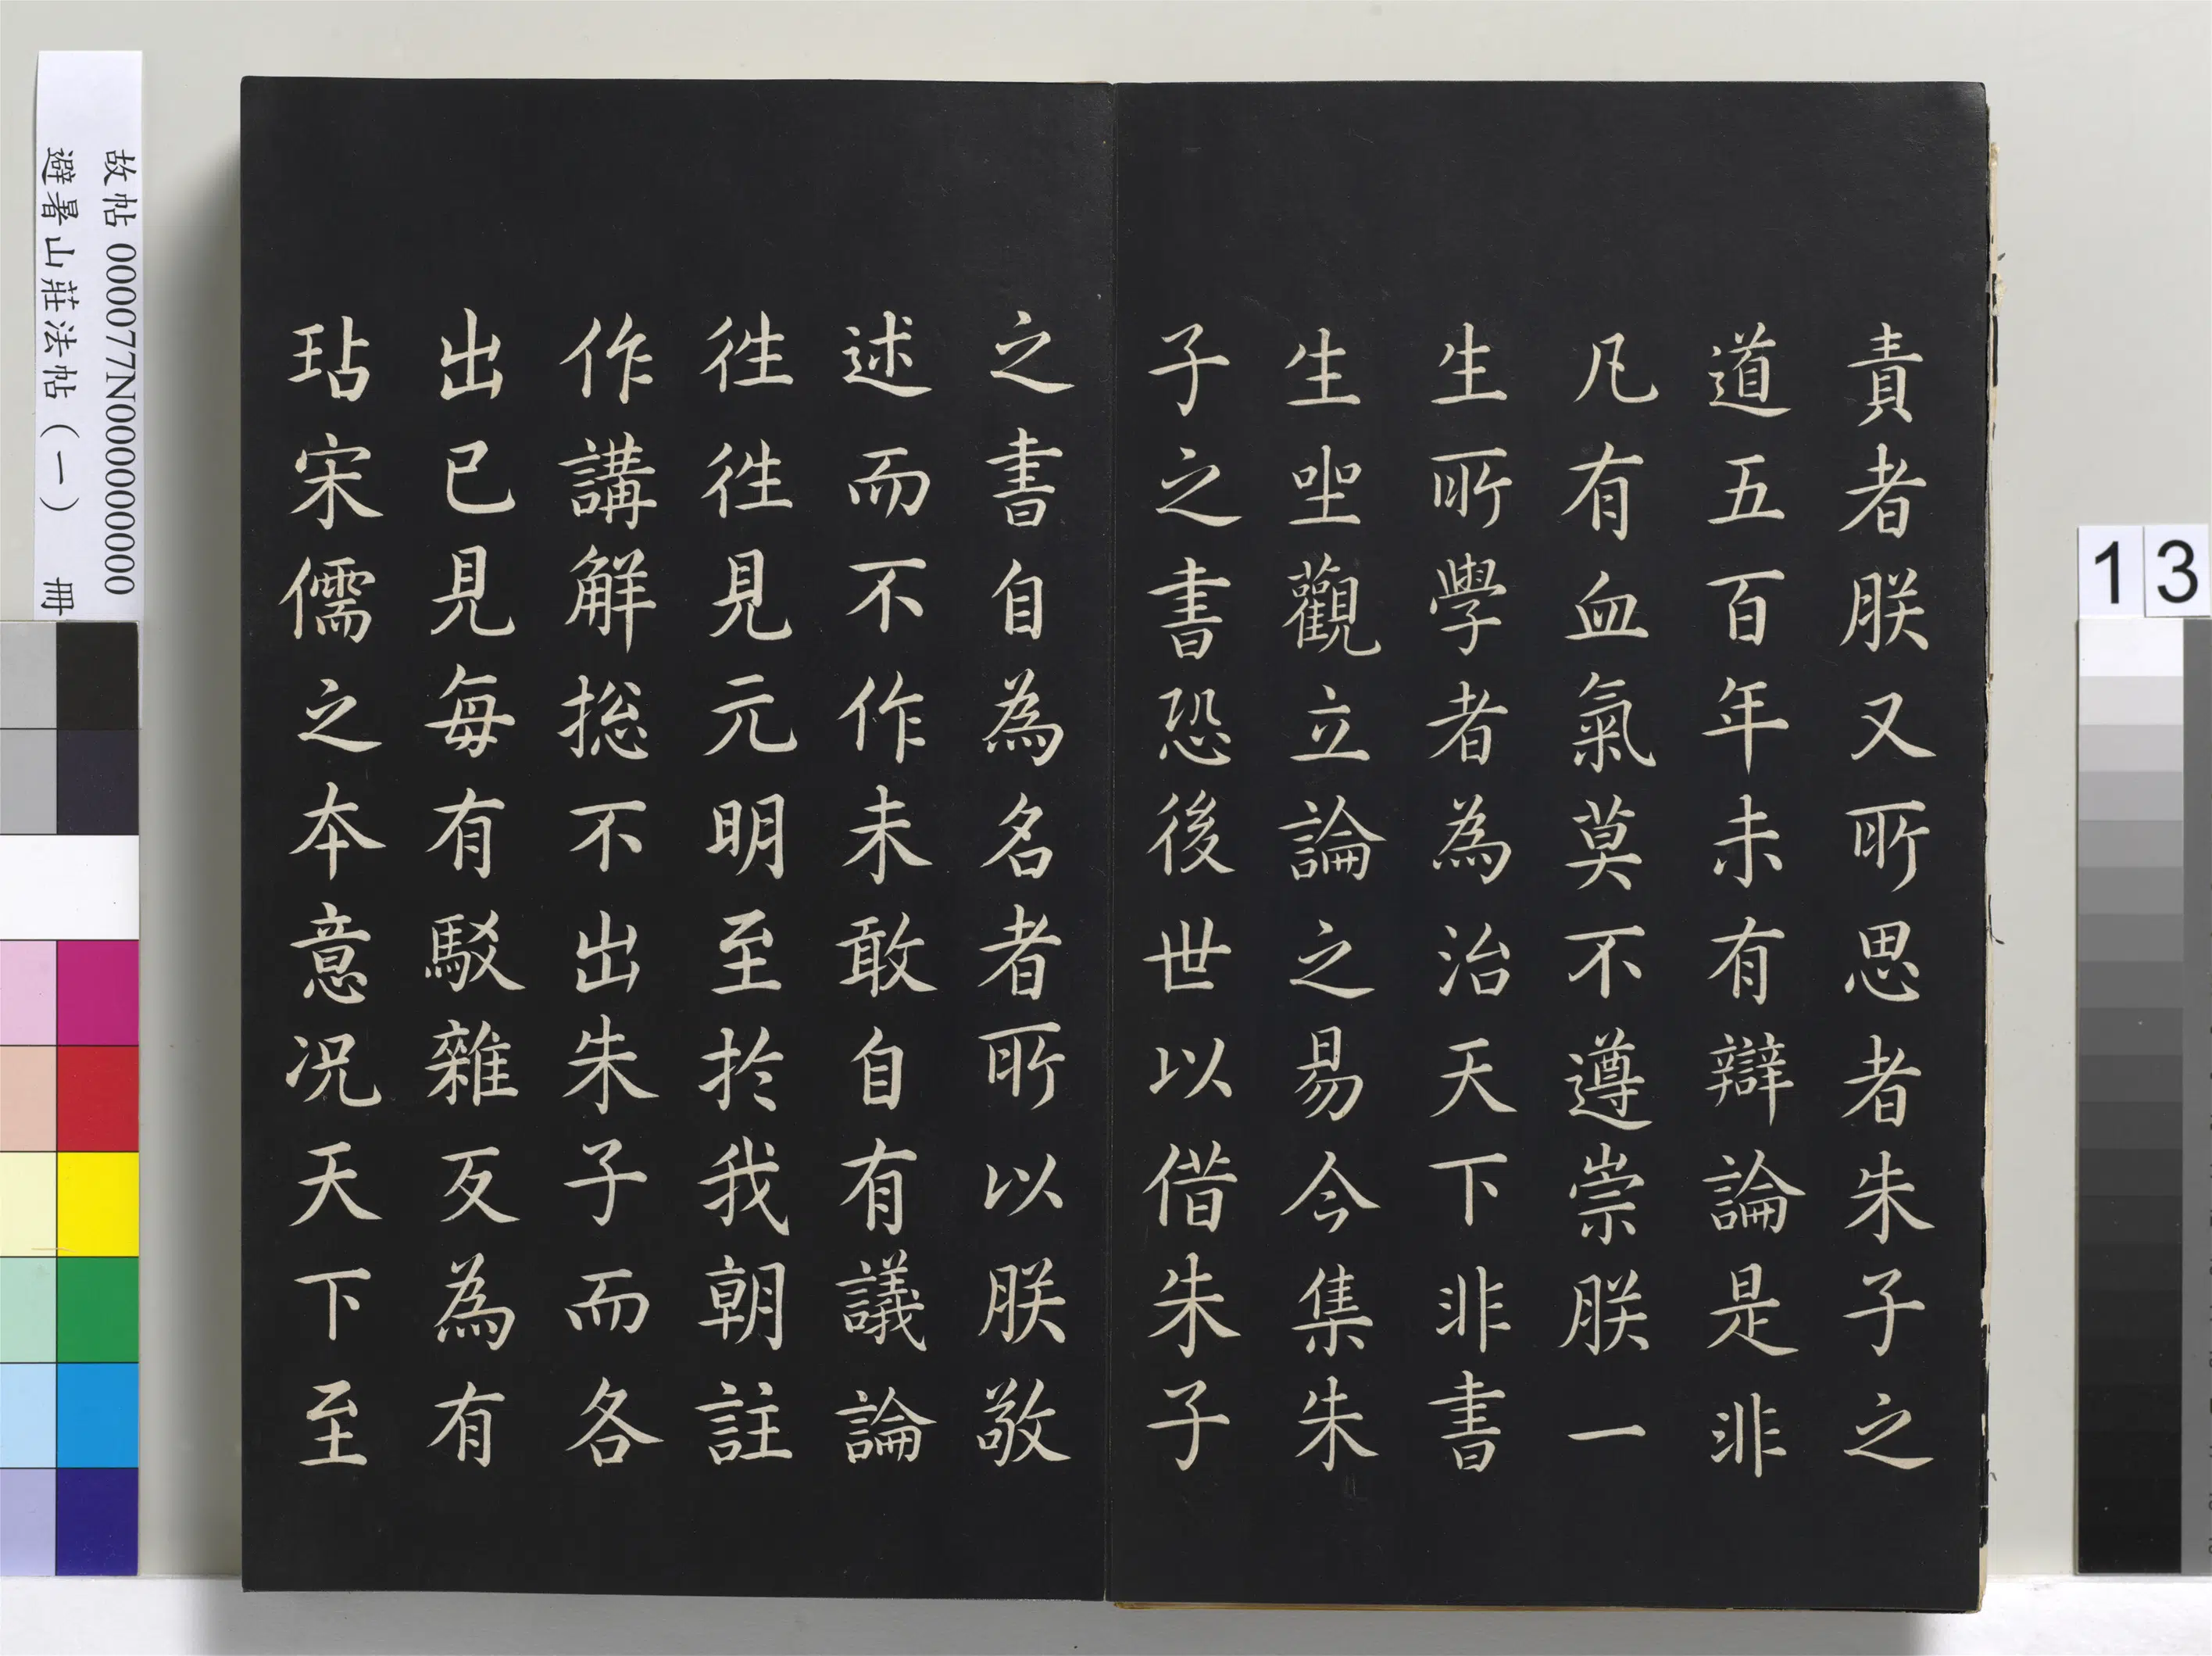 責者朕又所思者朱子之
道五百年未有辯論是非
凡有血氣莫不遵崇朕一
生所學者為治天下非書
生坐觀立論之易今集朱
子之書恐後世以借朱子
之書自為名者所以朕敬
述而不作未敢自有議論
往往見元明至於我朝註
作講解總不出朱子而各
出己見每有駁雜反為有
玷宋儒之本意况天下至
故帖 000077N000000000
避暑山莊法帖（一） 冊
13